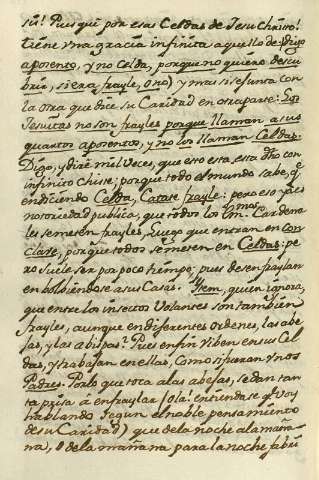 sũ! Pues què por esas Celdas de Jesu Christo!
tiene vna gracia infinita aquello de: digo
aposento, y no Celda, porque no quiero descu
brir, si era frayle, ò no) y mas si se junta con
la otra que dice su Caridad en otra parte: Los
Jesuitas no son frayles porque llaman a sus
quartos aposentos, y no los llaman Celdas.
Digo, y dirè mil veces, que eso esta, esta dho con
infinito chiste; porque todo el mundo sabe, q̃
en diciendo Celda, Catate frayle: pero eso ya es
notoriedad publica, que todos los Em.mos Cardena
les se meten frayles, luego que entran en Con
Clave, porque todos se meten en Celdas: pe
ro suele ser por poco tiempo; pues desenfraylan
en bolviendose a sus Casas. Item, quien ignora,
que entre los insectos Volantes son tambien
frayles, aunque en diferentes ordenes, las abe
jas, y las abispas? Pues en fin viben en sus Cel
das, y trabajan en ellas, Como si fueran Vnos
Padres. Por lo que toca a las abejas, se dan tan
ta prisa á enfraylar (ola! entiendase q̃ Voy
hablando segun el noble pensamiento
de su Caridad) que de la noche a la maña
na, ò de la mañana para la noche fabri